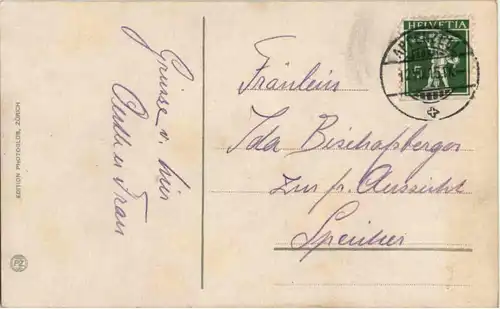 EDITION PHOTOGLOB, ZÜRICH
PZ
Grüsse v. hier
Arth u Frau
HELVETIA
Fräulein
Ida Bischofsberger
zur fr. Aussicht
Speicher